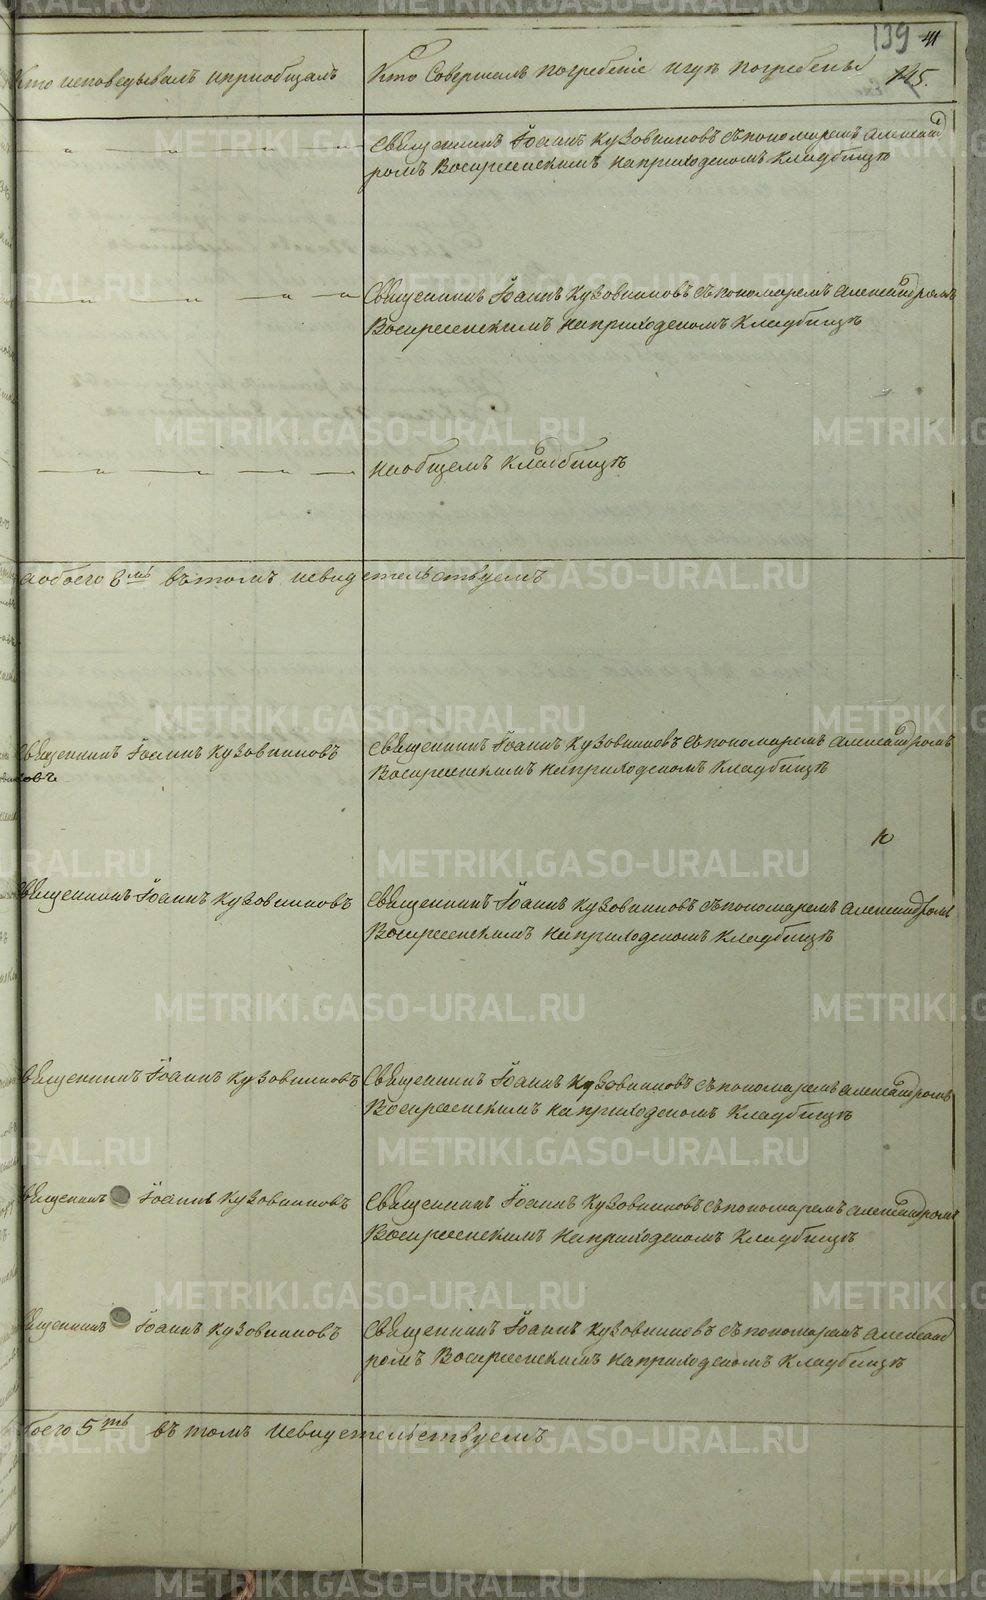 139 41
Кто исповедывалъ и приобщалъ
Кто Совершалъ погребеніе и гдѣ погребены
125.
Священникъ Іоаннъ Кузовниковъ съ пономаремъ Александ
ромъ Воскресенскимъ на приходскомъ Кладбищѣ
Священникъ Іоаннъ Кузовниковъ съ пономаремъ Александромъ
Воскресенскимъ на приходскомъ Кладбищѣ
на общемъ Кладбищѣ
а обоего 8мь въ томъ и свидѣтельствуемъ
Священникъ Іоаннъ Кузовниковъ
Священникъ Іоаннъ Кузовниковъ съ пономаремъ Александромъ
Воскресенскимъ на приходскомъ Кладбищѣ
Священникъ Іоаннъ Кузовниковъ
Священникъ Іоаннъ Кузовниковъ съ пономаремъ Александромъ
Воскресенскимъ на приходскомъ Кладбищѣ
Священникъ Іоаннъ Кузовниковъ
Священникъ Іоаннъ Кузовниковъ съ пономаремъ Александромъ
Воскресенскимъ на приходскомъ Кладбищѣ
Священникъ Іоаннъ Кузовниковъ
Священникъ Іоаннъ Кузовниковъ съ пономаремъ Александромъ
Воскресенскимъ на приходскомъ Кладбищѣ
Священникъ Іоаннъ Кузовниковъ
Священникъ Іоаннъ Кузовниковъ съ пономаремъ Александ
ромъ Воскресенскимъ на приходскомъ Кладбищѣ
боего 5ть въ томъ и свидѣтельствуемъ
METRIKI.GASO-URAL.RU